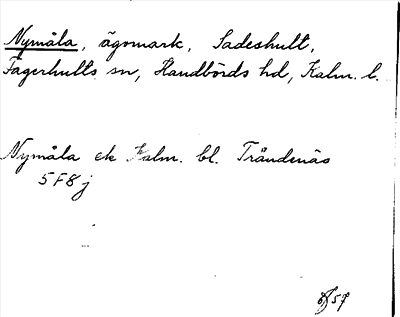 Nymåla, ägomark, Sadeshult,
Fagerhults sn, Handbörds hd, Kalm. l.
Nymåla ek Kalm. bl. Tråndenäs
5F8j
57